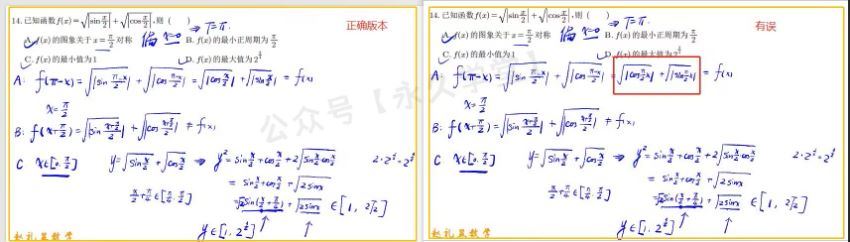 14. 已知函数 f(x)=√|sin x/2|+√|cos x/2|,则 ( ) ⇒ T=π. 正确版本
A. f(x) 的图象关于 x=π/2 对称 偶 x=0 B. f(x) 的最小正周期为 π/2
C. f(x) 的最小值为 1 D. f(x) 的最大值为 2^(3/4)
A: f(π-x)=√|sin (π-x)/2|+√|cos (π-x)/2|=√|cos x/2|+√|sin x/2|=f(x)
x=π/2
B: f(x+π/2)=√|sin (x+π/2)/2|+√|cos (x+π/2)/2| ≠ f(x)
C x∈[0,π/2] y=√sin x/2+√cos x/2 ⇒ y²=sin x/2+cos x/2+2√sin x/2 cos x/2
=sin x/2+cos x/2+√2sinx
x/2+π/4∈[π/4,π/2] =√2sin(x/2+π/4)+√2sinx ∈[1,2√2]
赵礼显数学
14. 已知函数 f(x)=√|sin π/2|+√|cos π/2|,则 ( ) ⇒ T=π. 有误
A. f(x) 的图象关于 x=π/2 对称 偶 x=0 B. f(x) 的最小正周期为 π/2
C. f(x) 的最小值为 1 D. f(x) 的最大值为
A: f(π-x)=√|sin (π-x)/2|+√|cos (π-x)/2|=√|cos π/2 x|+√|sin π/2 x|=f(x)
x=π/2
B: f(x+π/2)=√|sin (x+π/2)/2|+√|cos (x+π/2)/2| ≠ f(x)
C x∈[0,π/2] y=√sin x/2+√cos x/2 ⇒ y²=sin x/2+cos x/2+2√sin x/2 cos x/2
=sin x/2+cos x/2+√2sinx
x/2+π/4∈[π/4,π/2] =√2sin(x/2+π/4)+√2sinx ∈[1,2√2]
赵礼显数学
公众号【永久学堂】